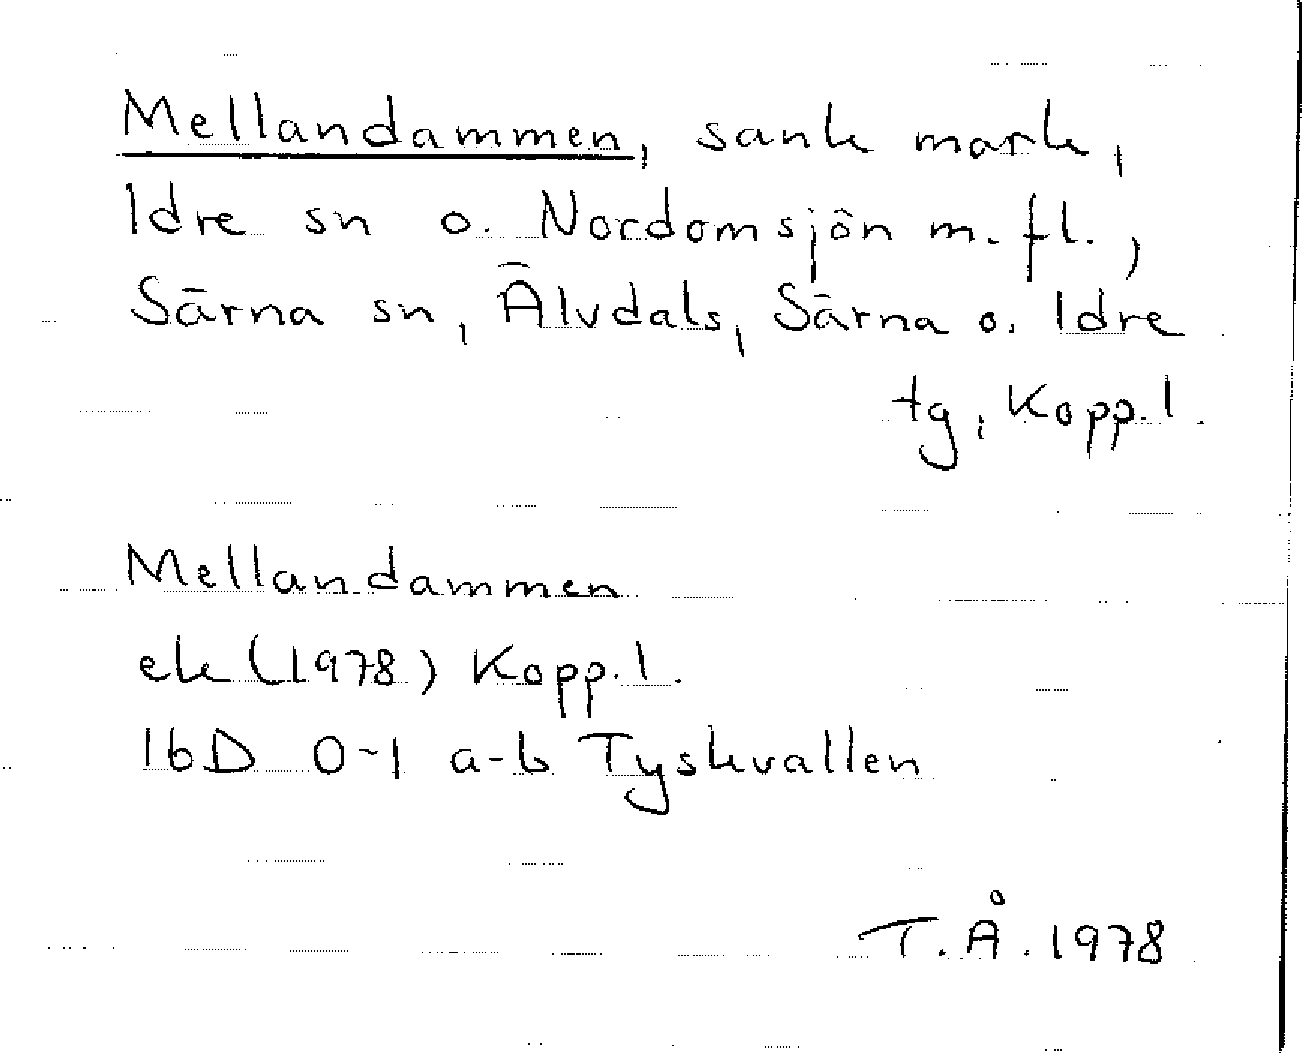 Mellandammen, sank mark,
Idre sn o. Nordomsjön m. fl.,
Särna sn, Älvdals, Särna o. Idre
tg, Kopp. l.
Mellandammen
ek (1978) Kopp. l.
16D 0-1 a-b Tyskvallen
T. Å. 1978